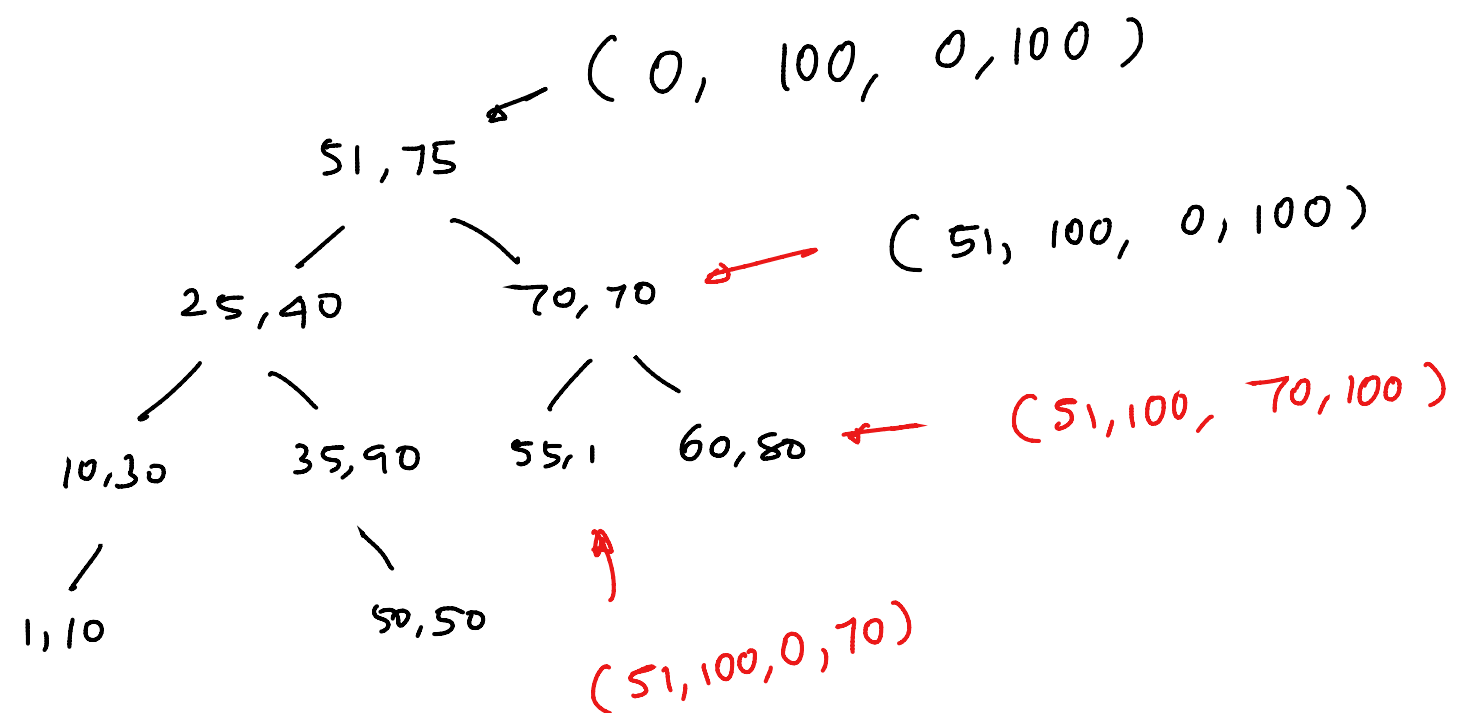 (0, 100, 0,100)
51,75
(51, 100, 0,100)
25,40 70,70
(51,100, 70,100)
10,30 35,90 55,1 60,80
1,10 50,50
(51,100,0,70)